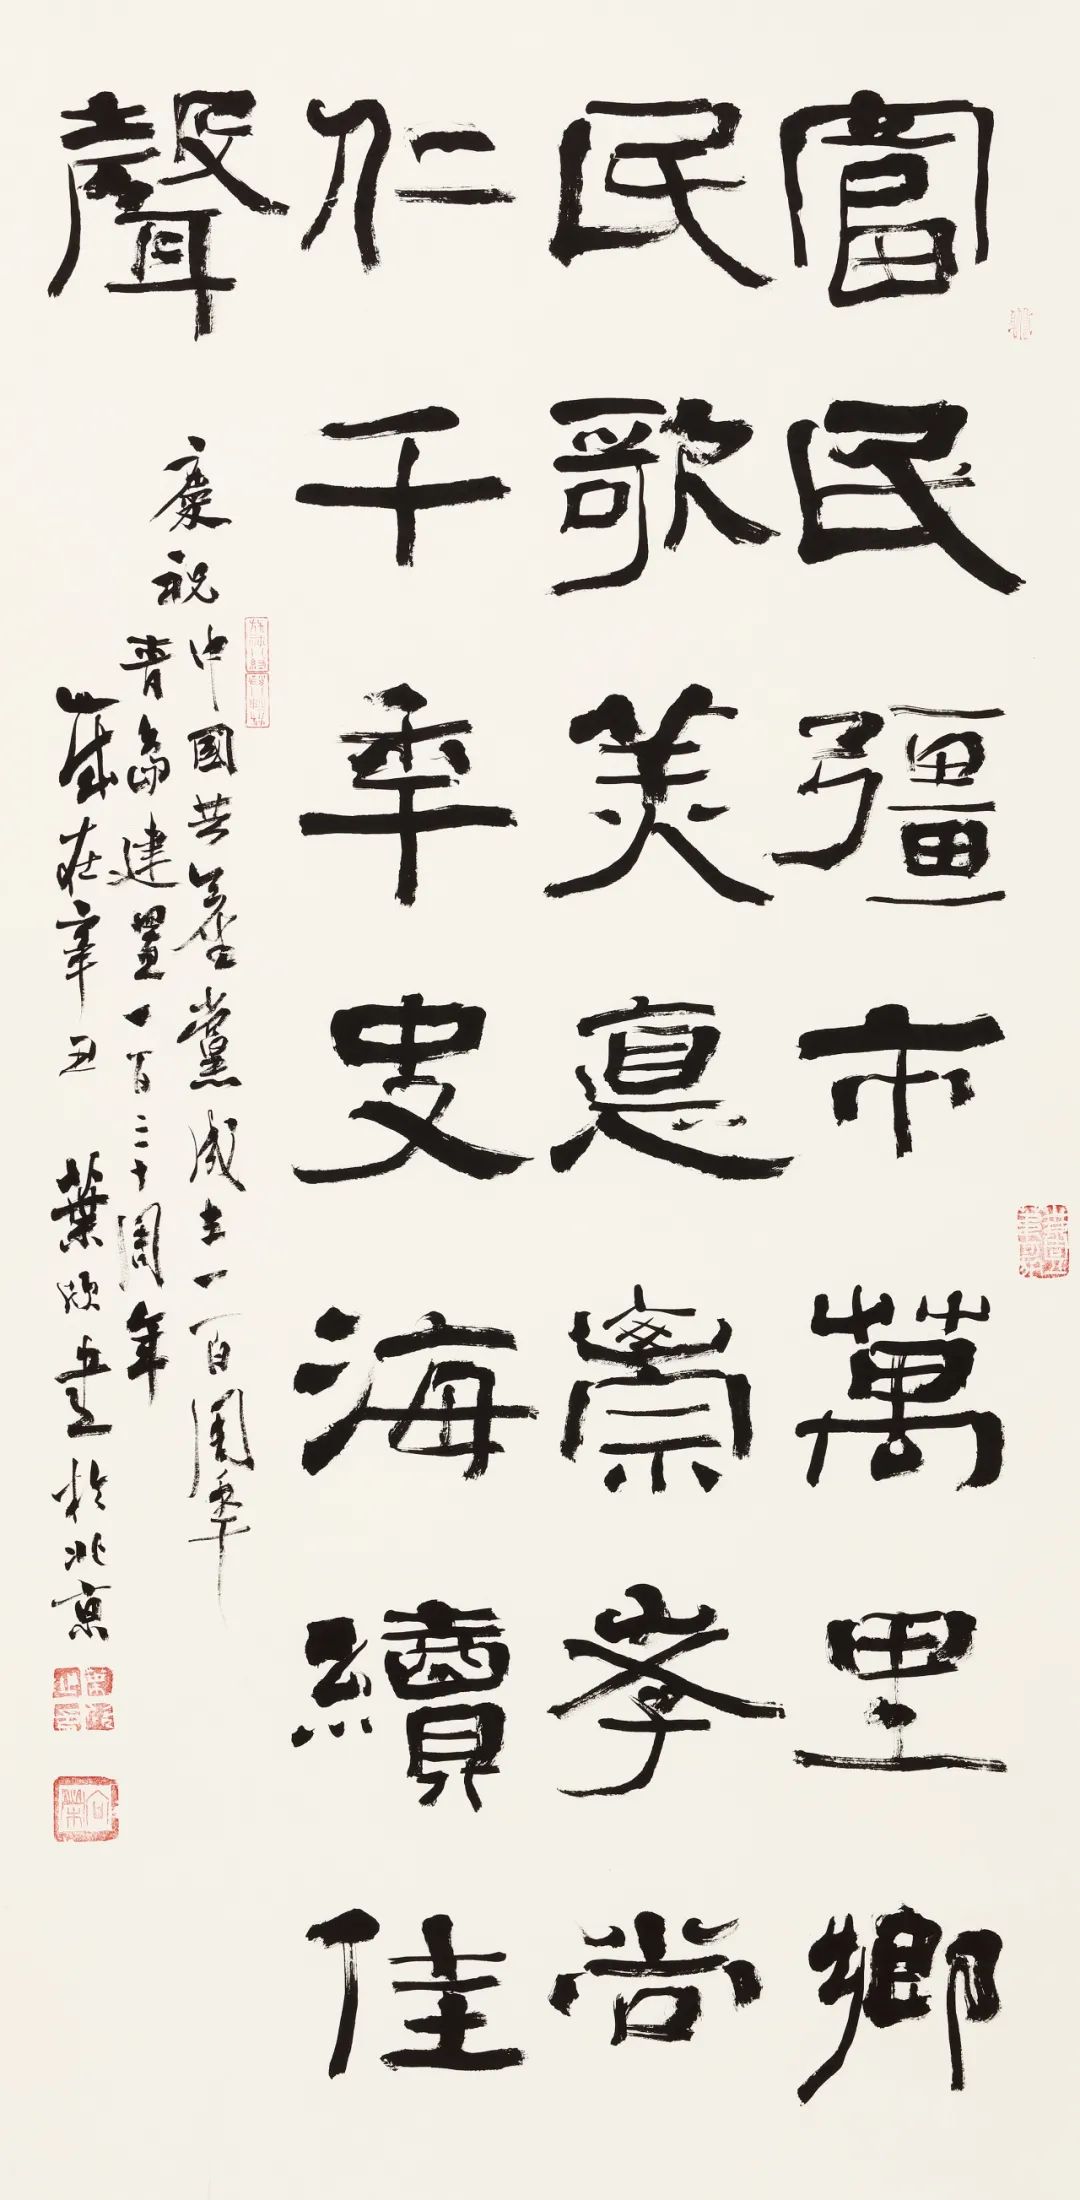 富民彊市萬里鄉
民歌美悳崇孝尚
仁千秊史海續佳
聲
慶祝中國共產黨成立一百周秊
青島建置一百二十周年
歲在辛丑 葉欣書於北京